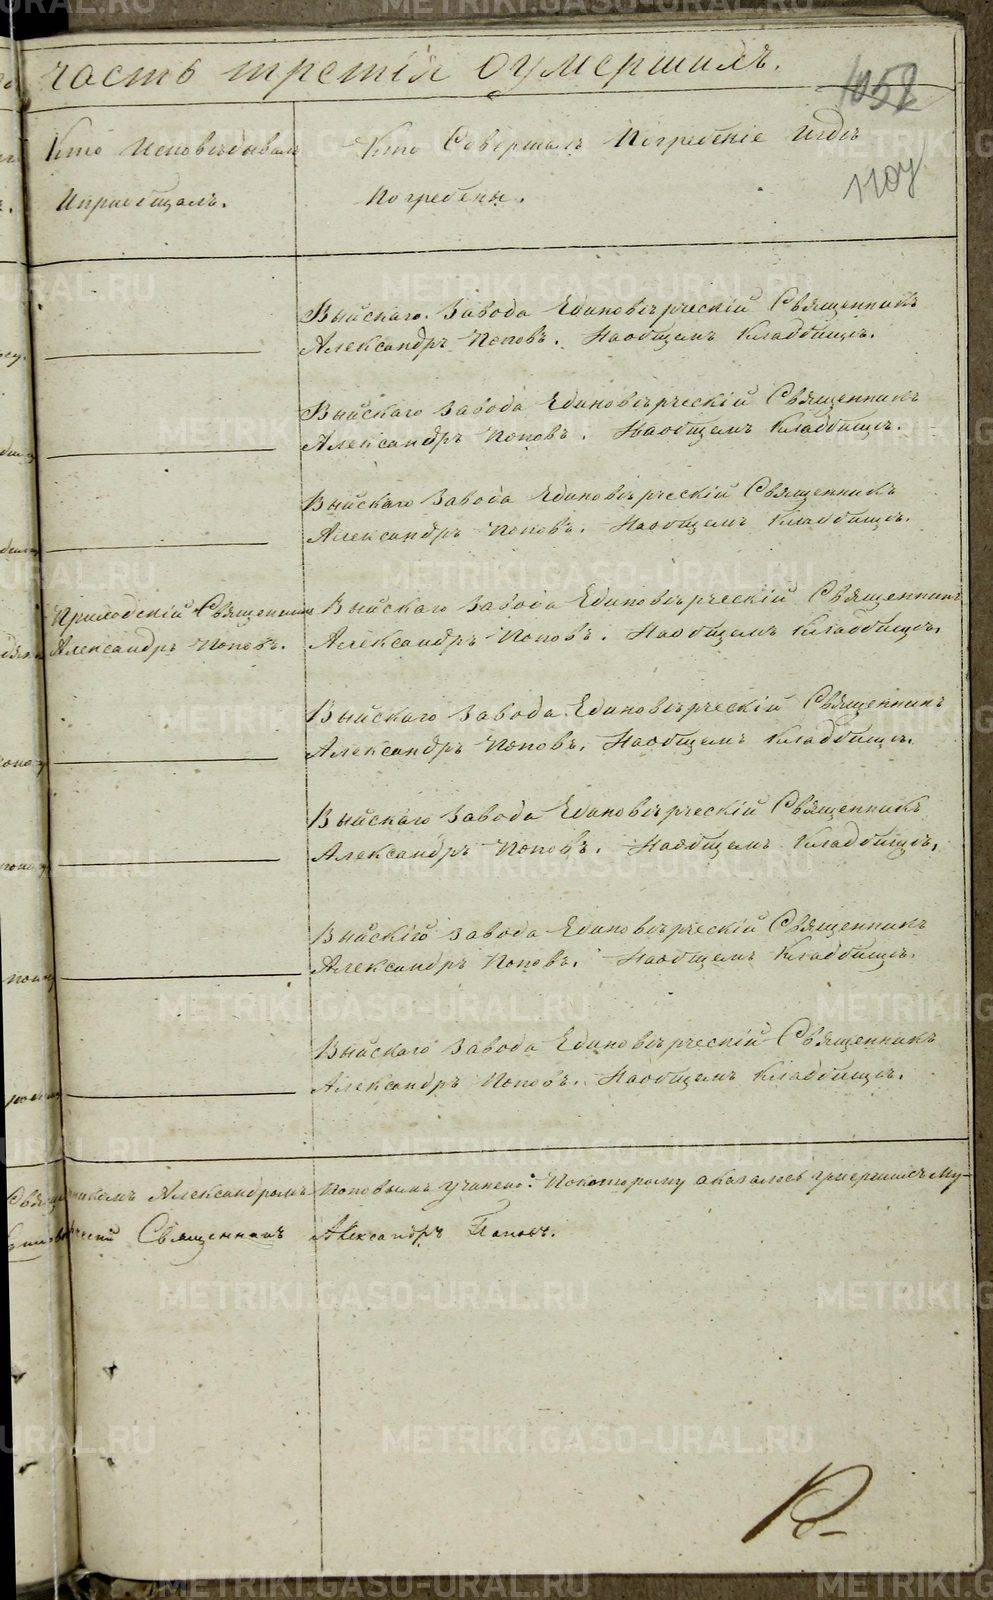 часть третія оумершихъ.
1058
1107
Кто Исповѣдывалъ
Ипріобщалъ.
Кто Совершалъ Погребеніе Игдѣ
Погребены.
Выйскаго завода Единовѣрческій Священникъ
Александръ Поповъ. Наобщемъ Кладбищѣ.
Выйскаго завода Единовѣрческій Священникъ
Александръ Поповъ. Наобщемъ Кладбищѣ.
Выйскаго завода Единовѣрческій Священникъ
Александръ Поповъ. Наобщемъ Кладбищѣ.
Приходскій Священникъ
Александръ Поповъ.
Выйскаго завода Единовѣрческій Священникъ
Александръ Поповъ. Наобщемъ Кладбищѣ.
Выйскаго завода Единовѣрческій Священникъ
Александръ Поповъ. Наобщемъ Кладбищѣ.
Выйскаго завода Единовѣрческій Священникъ
Александръ Поповъ. Наобщемъ Кладбищѣ.
Выйскаго завода Единовѣрческій Священникъ
Александръ Поповъ. Наобщемъ Кладбищѣ.
Выйскаго завода Единовѣрческій Священникъ
Александръ Поповъ. Наобщемъ Кладбищѣ.
Александромъ Поповымъ учинено: Покоторому оказалось умершихъ Му-
Священникъ Александръ Поповъ.
METRIKI.GASO-URAL.RU